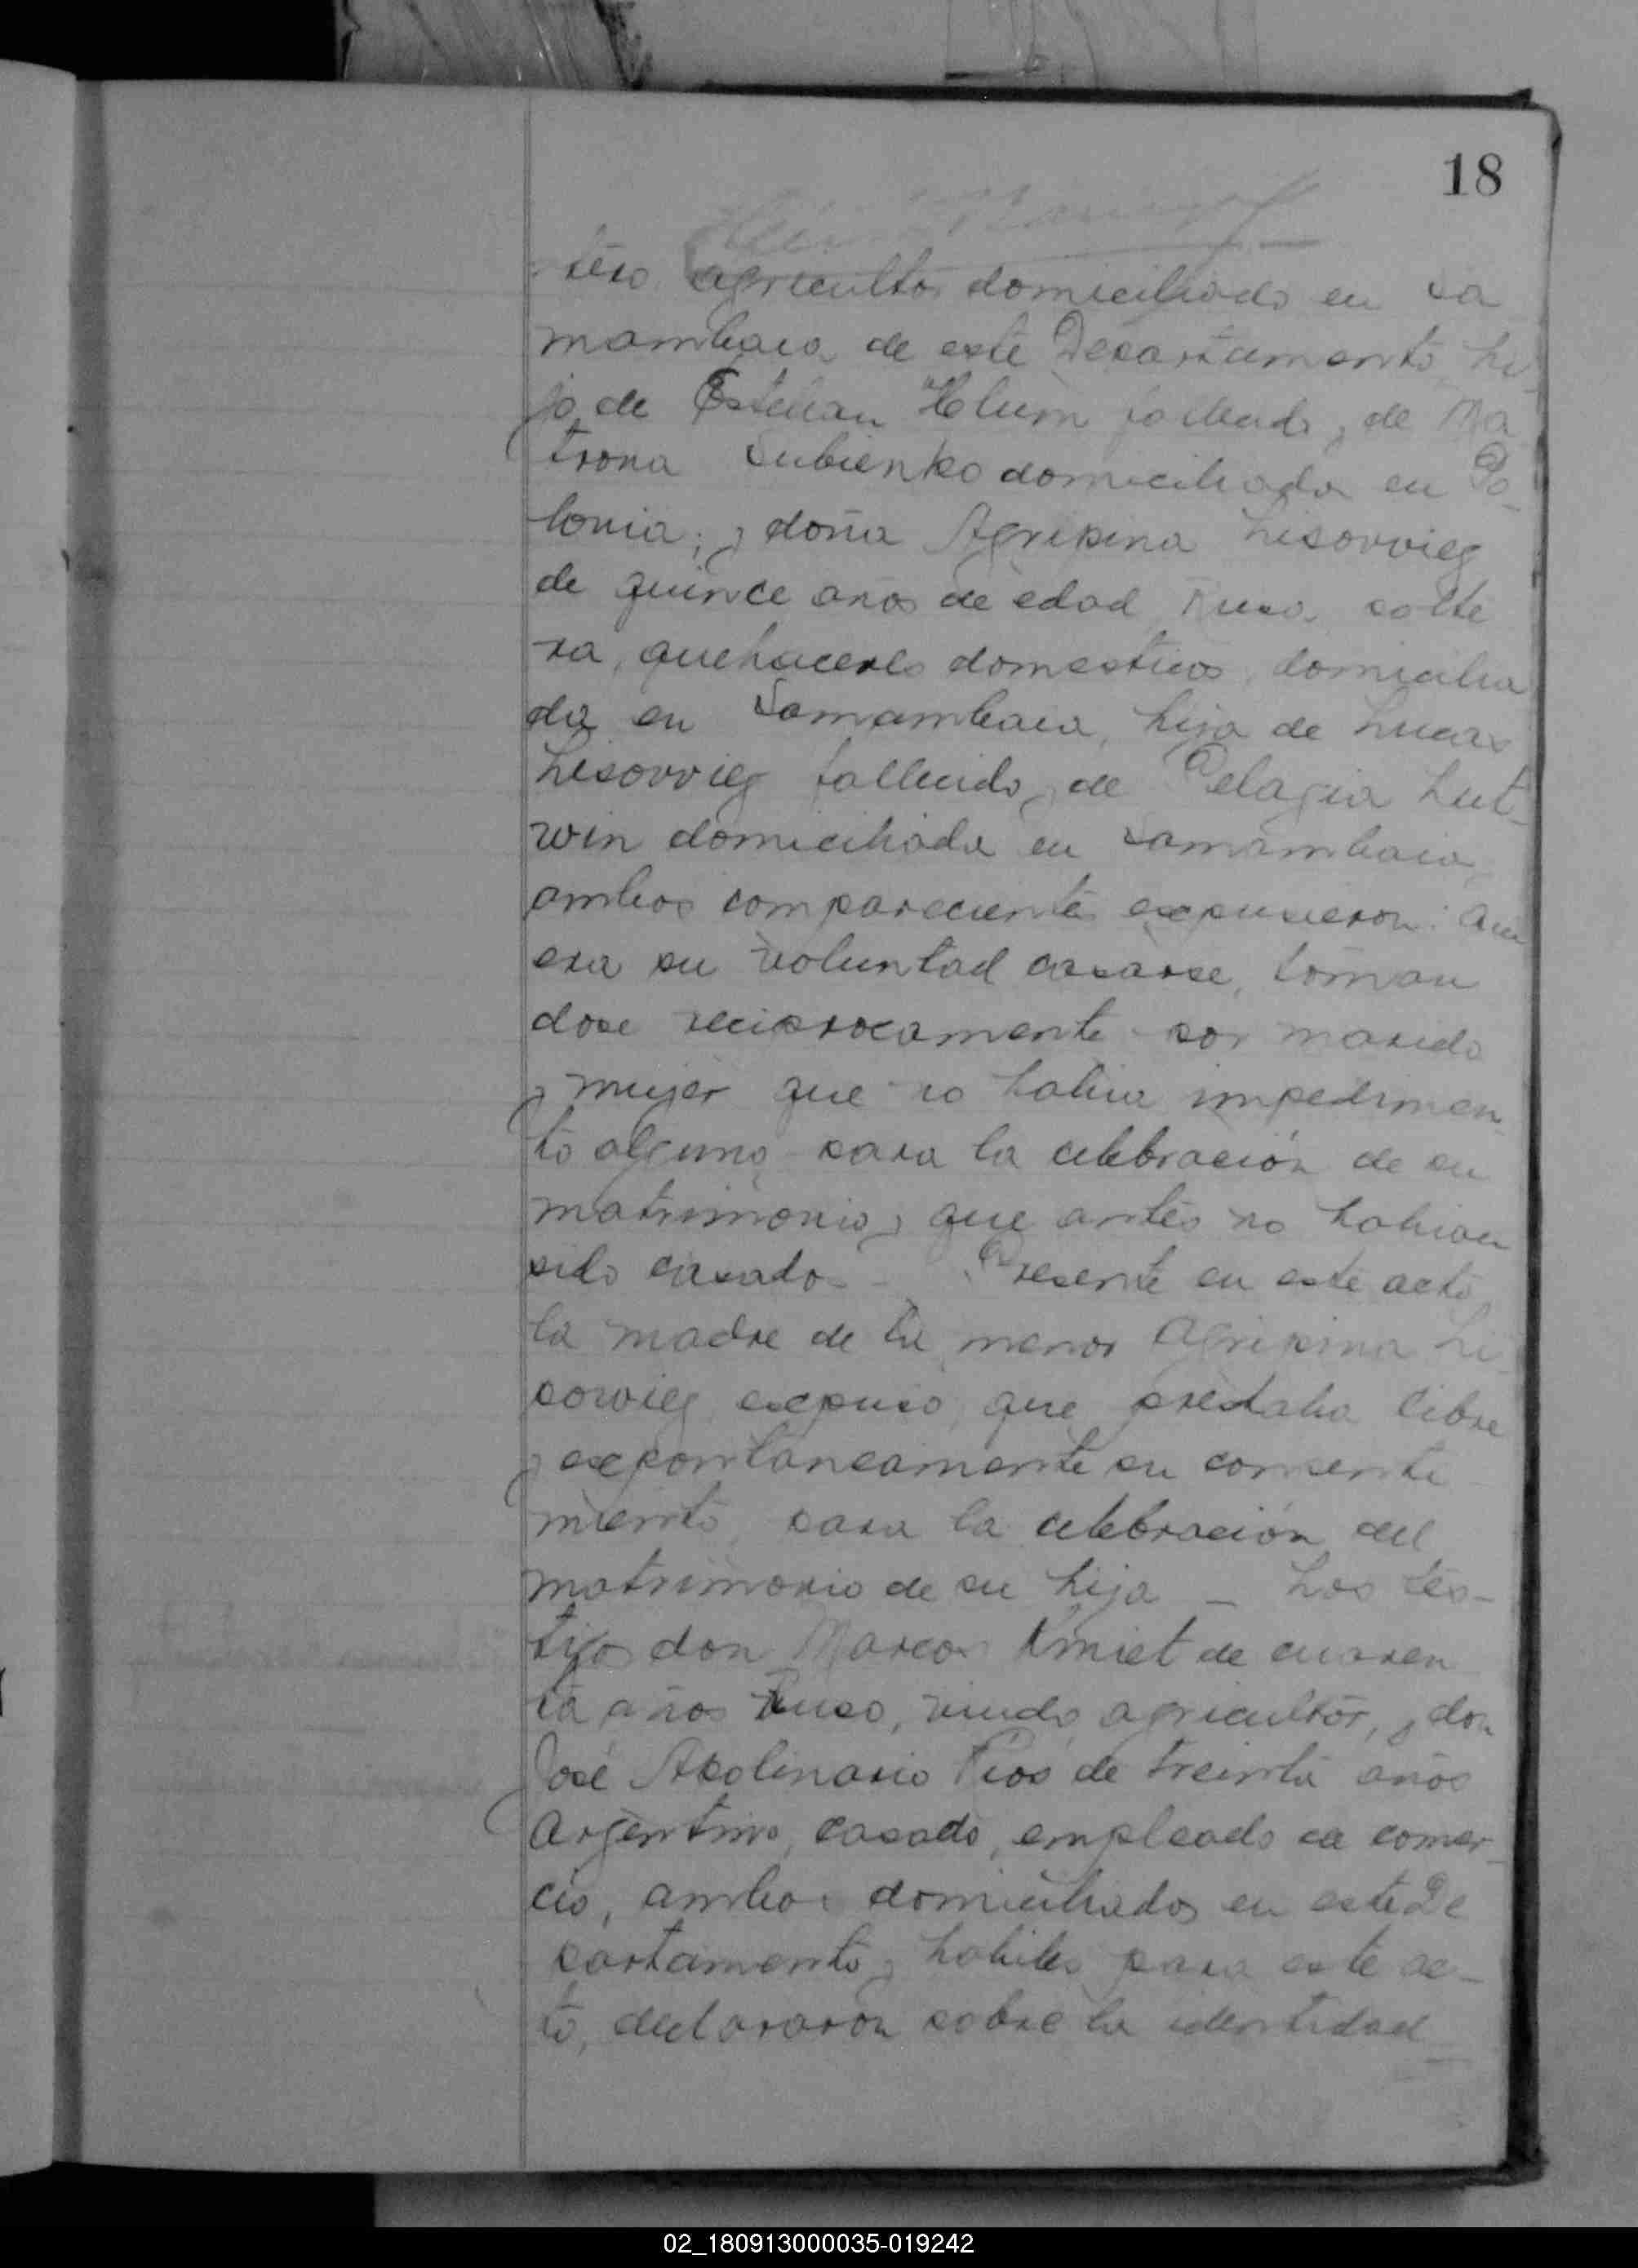 18
tero, agricultor domiciliado en Sa
mambaia de este Departamento, hi-
jo de Esteban Hlum fallecido y de Ma
trona Subienko domiciliada en Po-
lonia; y doña Agripina Lisovvieg
de quince años de edad, Rusa, solte
ra, quehaceres domesticos, domicilia
da en Samambaia, hija de Lucas
Lisovvieg fallecido y de Pelagia Lut-
win domiciliada en Samambaia,
ambos comparecientes expusieron: Que
era su voluntad casarse, toman
dose reciprocamente por marido
y mujer que no habia impedimen-
to alguno para la celebración de su
matrimonio y que antes no habian
sido casados - Presente en este acto
la madre de la menor Agripina Li
sovvieg expuso, que prestaba libre
y expontaneamente su consenti
miento para la celebración del
matrimonio de su hija - Los tes-
tigos don Marcos Kmiet de cuaren
ta años Ruso, viudo, agricultor, y don
José Apolinario Rios de treinta años
Argentino, casado, empleado en comer-
cio, ambos domiciliados en este De
partamento y habiles para este ac-
to, declararon sobre la identidad
02_180913000035-019242